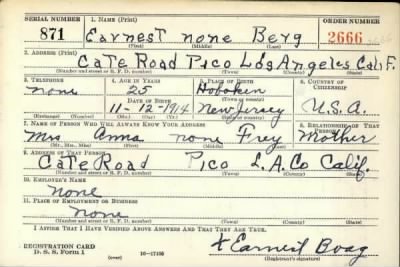 SERIAL NUMBER 1. NAME (Print) ORDER NUMBER
871 Earnest none Berg 2666 2666
(First) (Middle) (Last)
2. ADDRESS (Print)
Cate Road Pico Los Angeles Calif.
(Number and street or R. F. D. number) (Town) (County) (State)
3. TELEPHONE 4. AGE IN YEARS 5. PLACE OF BIRTH 6. COUNTRY OF CITIZENSHIP
none 25 Hoboken
DATE OF BIRTH (Town or county)
11-12-1914 New Jersey U.S.A.
(Exchange) (Number) (Mo.) (Day) (Yr.) (State or country)
7. NAME OF PERSON WHO WILL ALWAYS KNOW YOUR ADDRESS 8. RELATIONSHIP OF THAT PERSON
Mrs Anna none Frey Mother
(Mr., Mrs., Miss) (First) (Middle) (Last)
9. ADDRESS OF THAT PERSON
Cate Road Pico L.A. Co Calif.
(Number and street or R. F. D. number) (Town) (County) (State)
10. EMPLOYER'S NAME
None
11. PLACE OF EMPLOYMENT OR BUSINESS
none
(Number and street or R. F. D. number) (Town) (County) (State)
I AFFIRM THAT I HAVE VERIFIED ABOVE ANSWERS AND THAT THEY ARE TRUE.
REGISTRATION CARD
D. S. S. Form 1 (over) 16-17105 x Earnest Boag
(Registrant's signature)